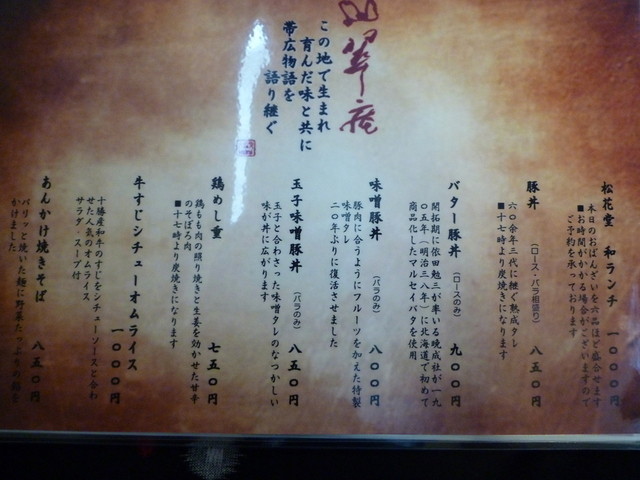 翠庵
この地で生まれ
育んだ味と共に
帯広物語を
語り継ぐ
松花堂 和ランチ 一〇〇〇円
本日のおばんざいを六品ほど盛合せます
■お時間がかかる場合がございますので
ご予約を承っております
豚丼 (ロース・バラ相盛り) 八五〇円
六〇余年三代に継ぐ熟成タレ
■十七時より炭焼きになります
バター豚丼 (ロースのみ) 九〇〇円
開拓期に依田勉三が率いる晩成社が一九
〇五年(明治三八年)に北海道で初めて
商品化したマルセイバタを使用
味噌豚丼 (バラのみ) 八〇〇円
豚肉に合うようにフルーツを加えた特製
味噌タレ
二〇年ぶりに復活させました
玉子味噌豚丼 (バラのみ) 八五〇円
玉子と合わさった味噌タレのなつかしい
味が丼に広がります
鶏めし重 七五〇円
鶏もも肉の照り焼きと生姜を効かせた甘辛
のそぼろ肉
■十七時より炭焼きになります
牛すじシチューオムライス 一〇〇〇円
十勝産和牛のすじをシチューソースと合わ
せた人気のオムライス
サラダ・スープ付
あんかけ焼きそば 八五〇円
パリッと焼いた麺に野菜たっぷりの
かけました